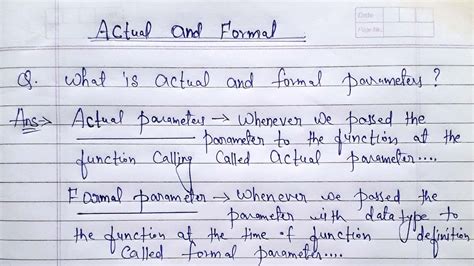 Date
Page No.
Actual and Formal
Q. What is actual and formal parameters ?
Ans→ Actual parameters → Whenever we passed the
parameter to the function at the
function calling called actual parameter....
Formal parameter → Whenever we passed the
parameter with data type to
the function at the time of function definition
called formal parameter....